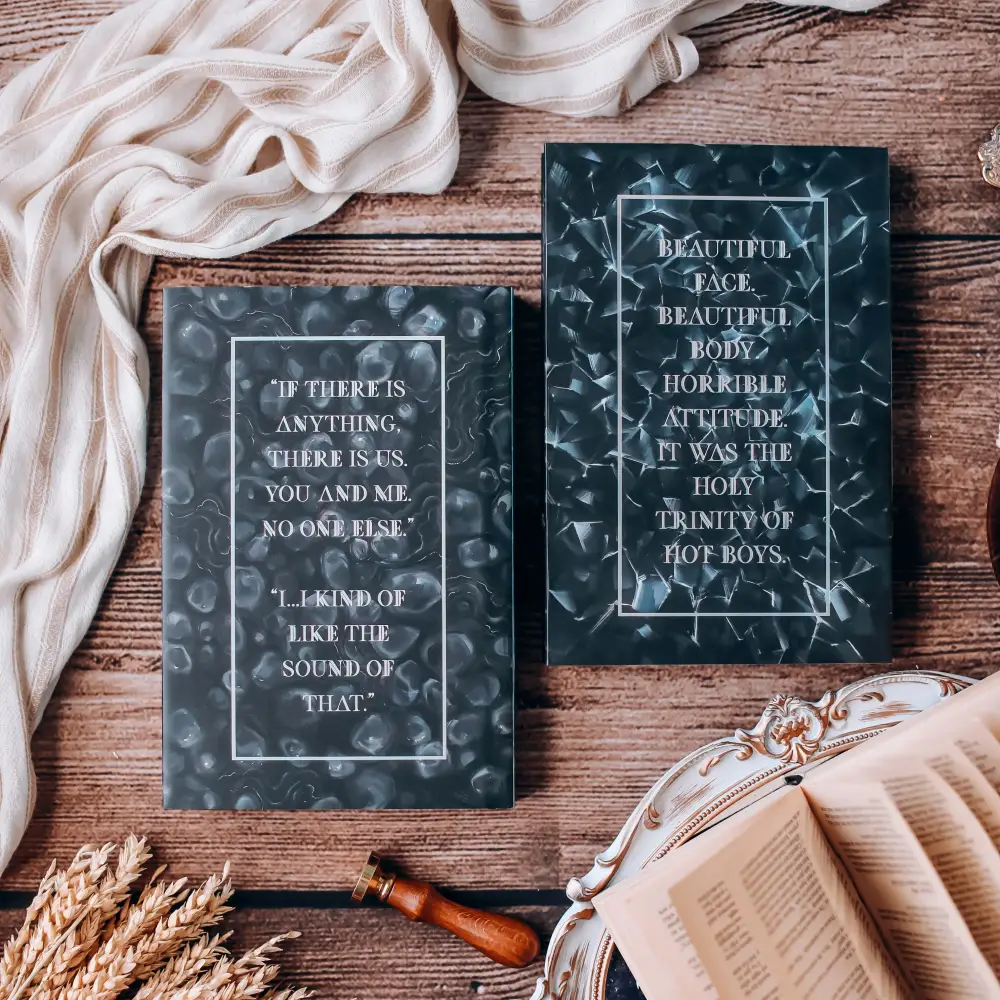 “IF THERE IS
ANYTHING,
THERE IS US.
YOU AND ME.
NO ONE ELSE.”
“I...I KIND OF
LIKE THE
SOUND OF
THAT.”
BEAUTIFUL
FACE.
BEAUTIFUL
BODY.
HORRIBLE
ATTITUDE.
IT WAS THE
HOLY
TRINITY OF
HOT BOYS.